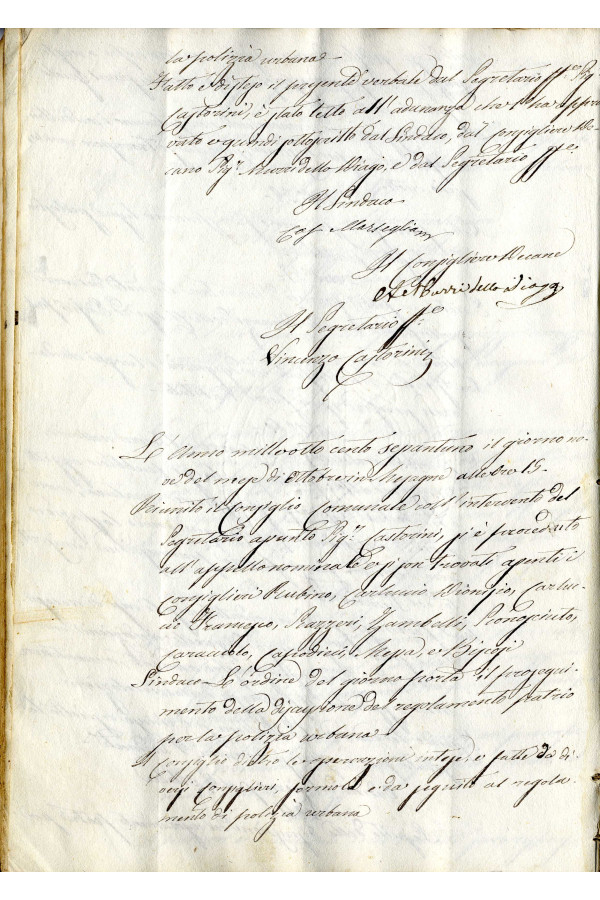 la polizia urbana
Fatto e disteso il presente verbale dal Segretario ff. Sig.
Castorini, è stato letto all'adunanza che l'ha appro-
vato e quindi sottoscritto dal Sindaco, dal Consigliere De-
cano Sig. dello Diago, e dal Segretario ff.
Il Sindaco
Cos. Marsegliam
Il Consigliere Decano
dello Diago
Il Segretario ff.
Vincenzo Castorini
L'Anno mille otto cento settantuno il giorno no-
ve del mese di Ottobre in Mesagne alle Ore 15.
Riunito il Consiglio Comunale coll'intervento del
Segretario assunto Sig. Castorini, s'è proceduto
all'appello nominale e si son trovati assenti i
Consiglieri Rubino, Carluccio Dionisio, Carluc-
cio Francesco, Razzeri, Zambelli, Ronosciuto,
Caracciolo, Capodici, Mesa, e Bisesi
Sindaco L'ordine del giorno porta il prosegui-
mento della discussione del regolamento
per la polizia urbana
Il Consiglio dietro le operazioni intese, e fatte da di-
versi Consiglieri, formola e da seguito al regola-
mento di polizia urbana